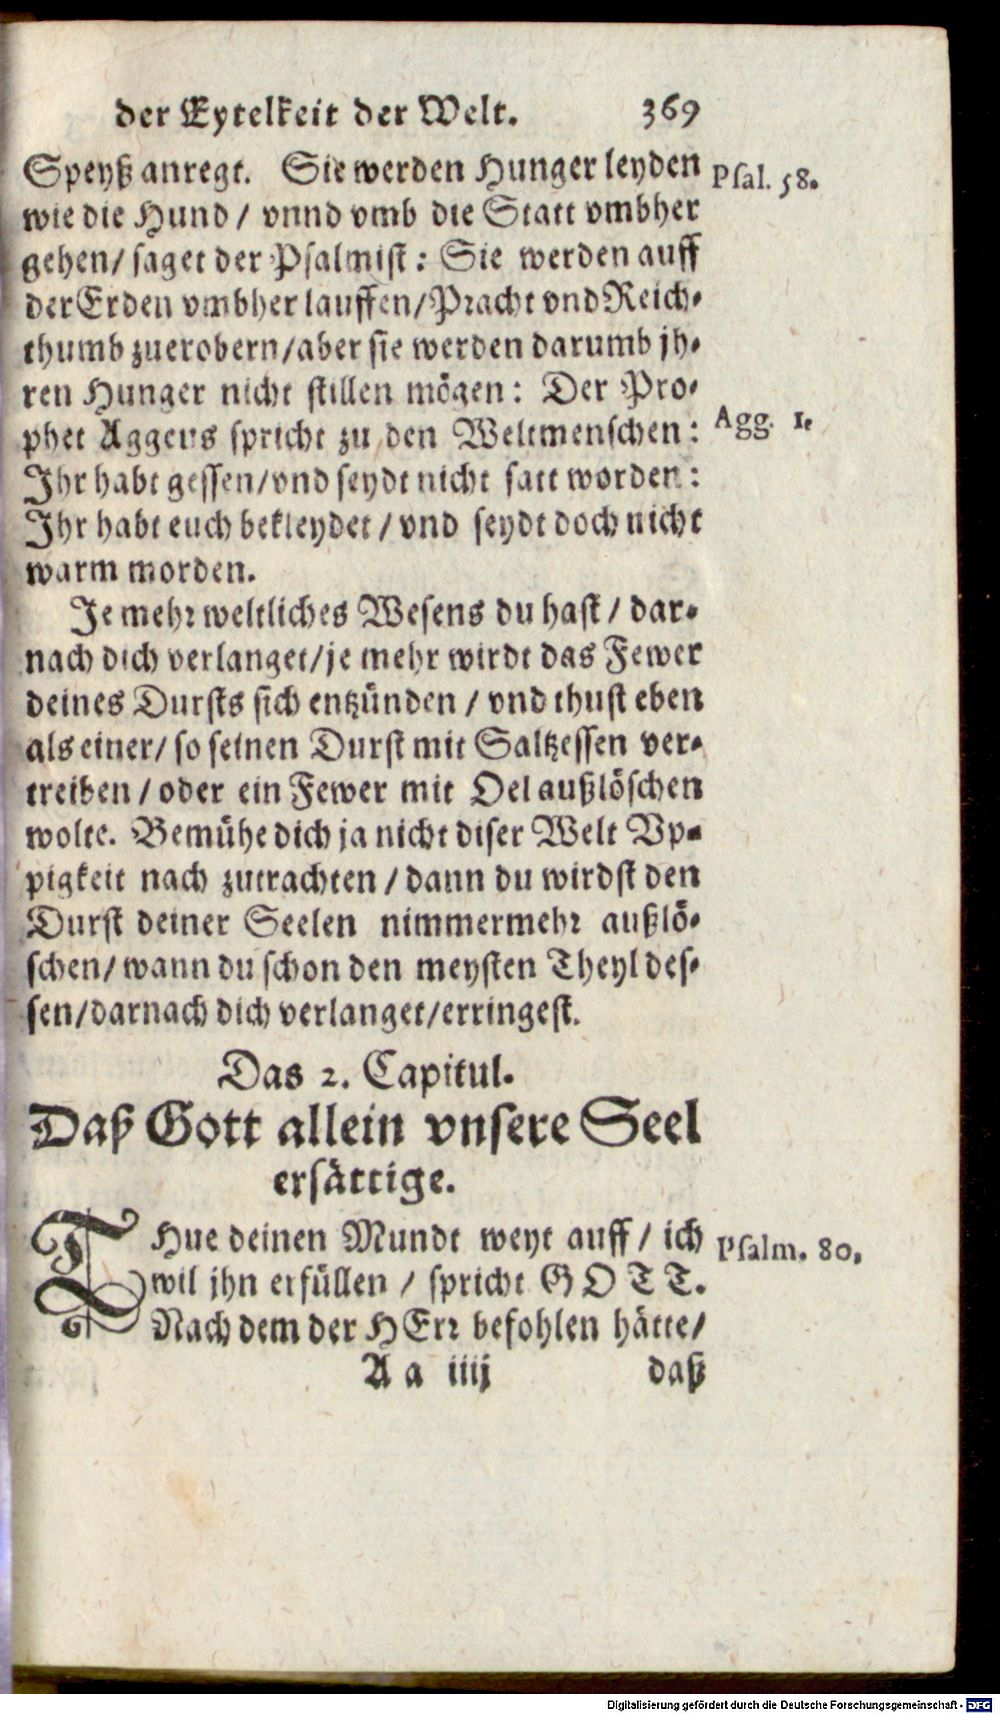 der Eytelkeit der Welt. 369
Speyß anregt. Sie werden Hunger leyden Psal. 58.
wie die Hund / vnnd vmb die Statt vmbher
gehen/ saget der Psalmist: Sie werden auff
der Erden vmbher lauffen/Pracht vnd Reich-
thumb zuerobern/aber sie werden darumb jh-
ren Hunger nicht stillen mögen: Der Pro-
phet Aggeus spricht zu den Weltmenschen: Agg. 1.
Ihr habt gessen/vnd seydt nicht satt worden:
Ihr habt euch bekleydet / vnd seydt doch nicht
warm morden.
Je mehr weltliches Wesens du hast / dar-
nach dich verlanget/je mehr wirdt das Fewer
deines Dursts sich entzünden / vnd thust eben
als einer/ so seinen Durst mit Saltzessen ver-
treiben / oder ein Fewer mit Oel außlöschen
wolte. Bemühe dich ja nicht diser Welt Vp-
pigkeit nach zutrachten / dann du wirdst den
Durst deiner Seelen nimmermehr außlö-
schen/ wann du schon den meysten Theyl des-
sen/darnach dich verlanget/erringest.
Das 2. Capitul.
Daß Gott allein vnsere Seel
ersättige.
THue deinen Mundt weyt auff / ich Psalm. 80.
wil jhn erfüllen / spricht GOTT.
Nach dem der HErr befohlen hätte/
A a iiij daß
Digitalisierung gefördert durch die Deutsche Forschungsgemeinschaft - DFG